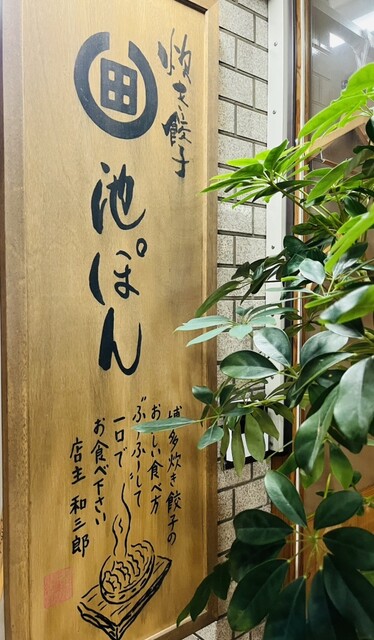 炊き餃子
田
池ぽん
博多炊き餃子の
おいしい食べ方
"ふーふー"して
一口で
お食べ下さい
店主 和三郎